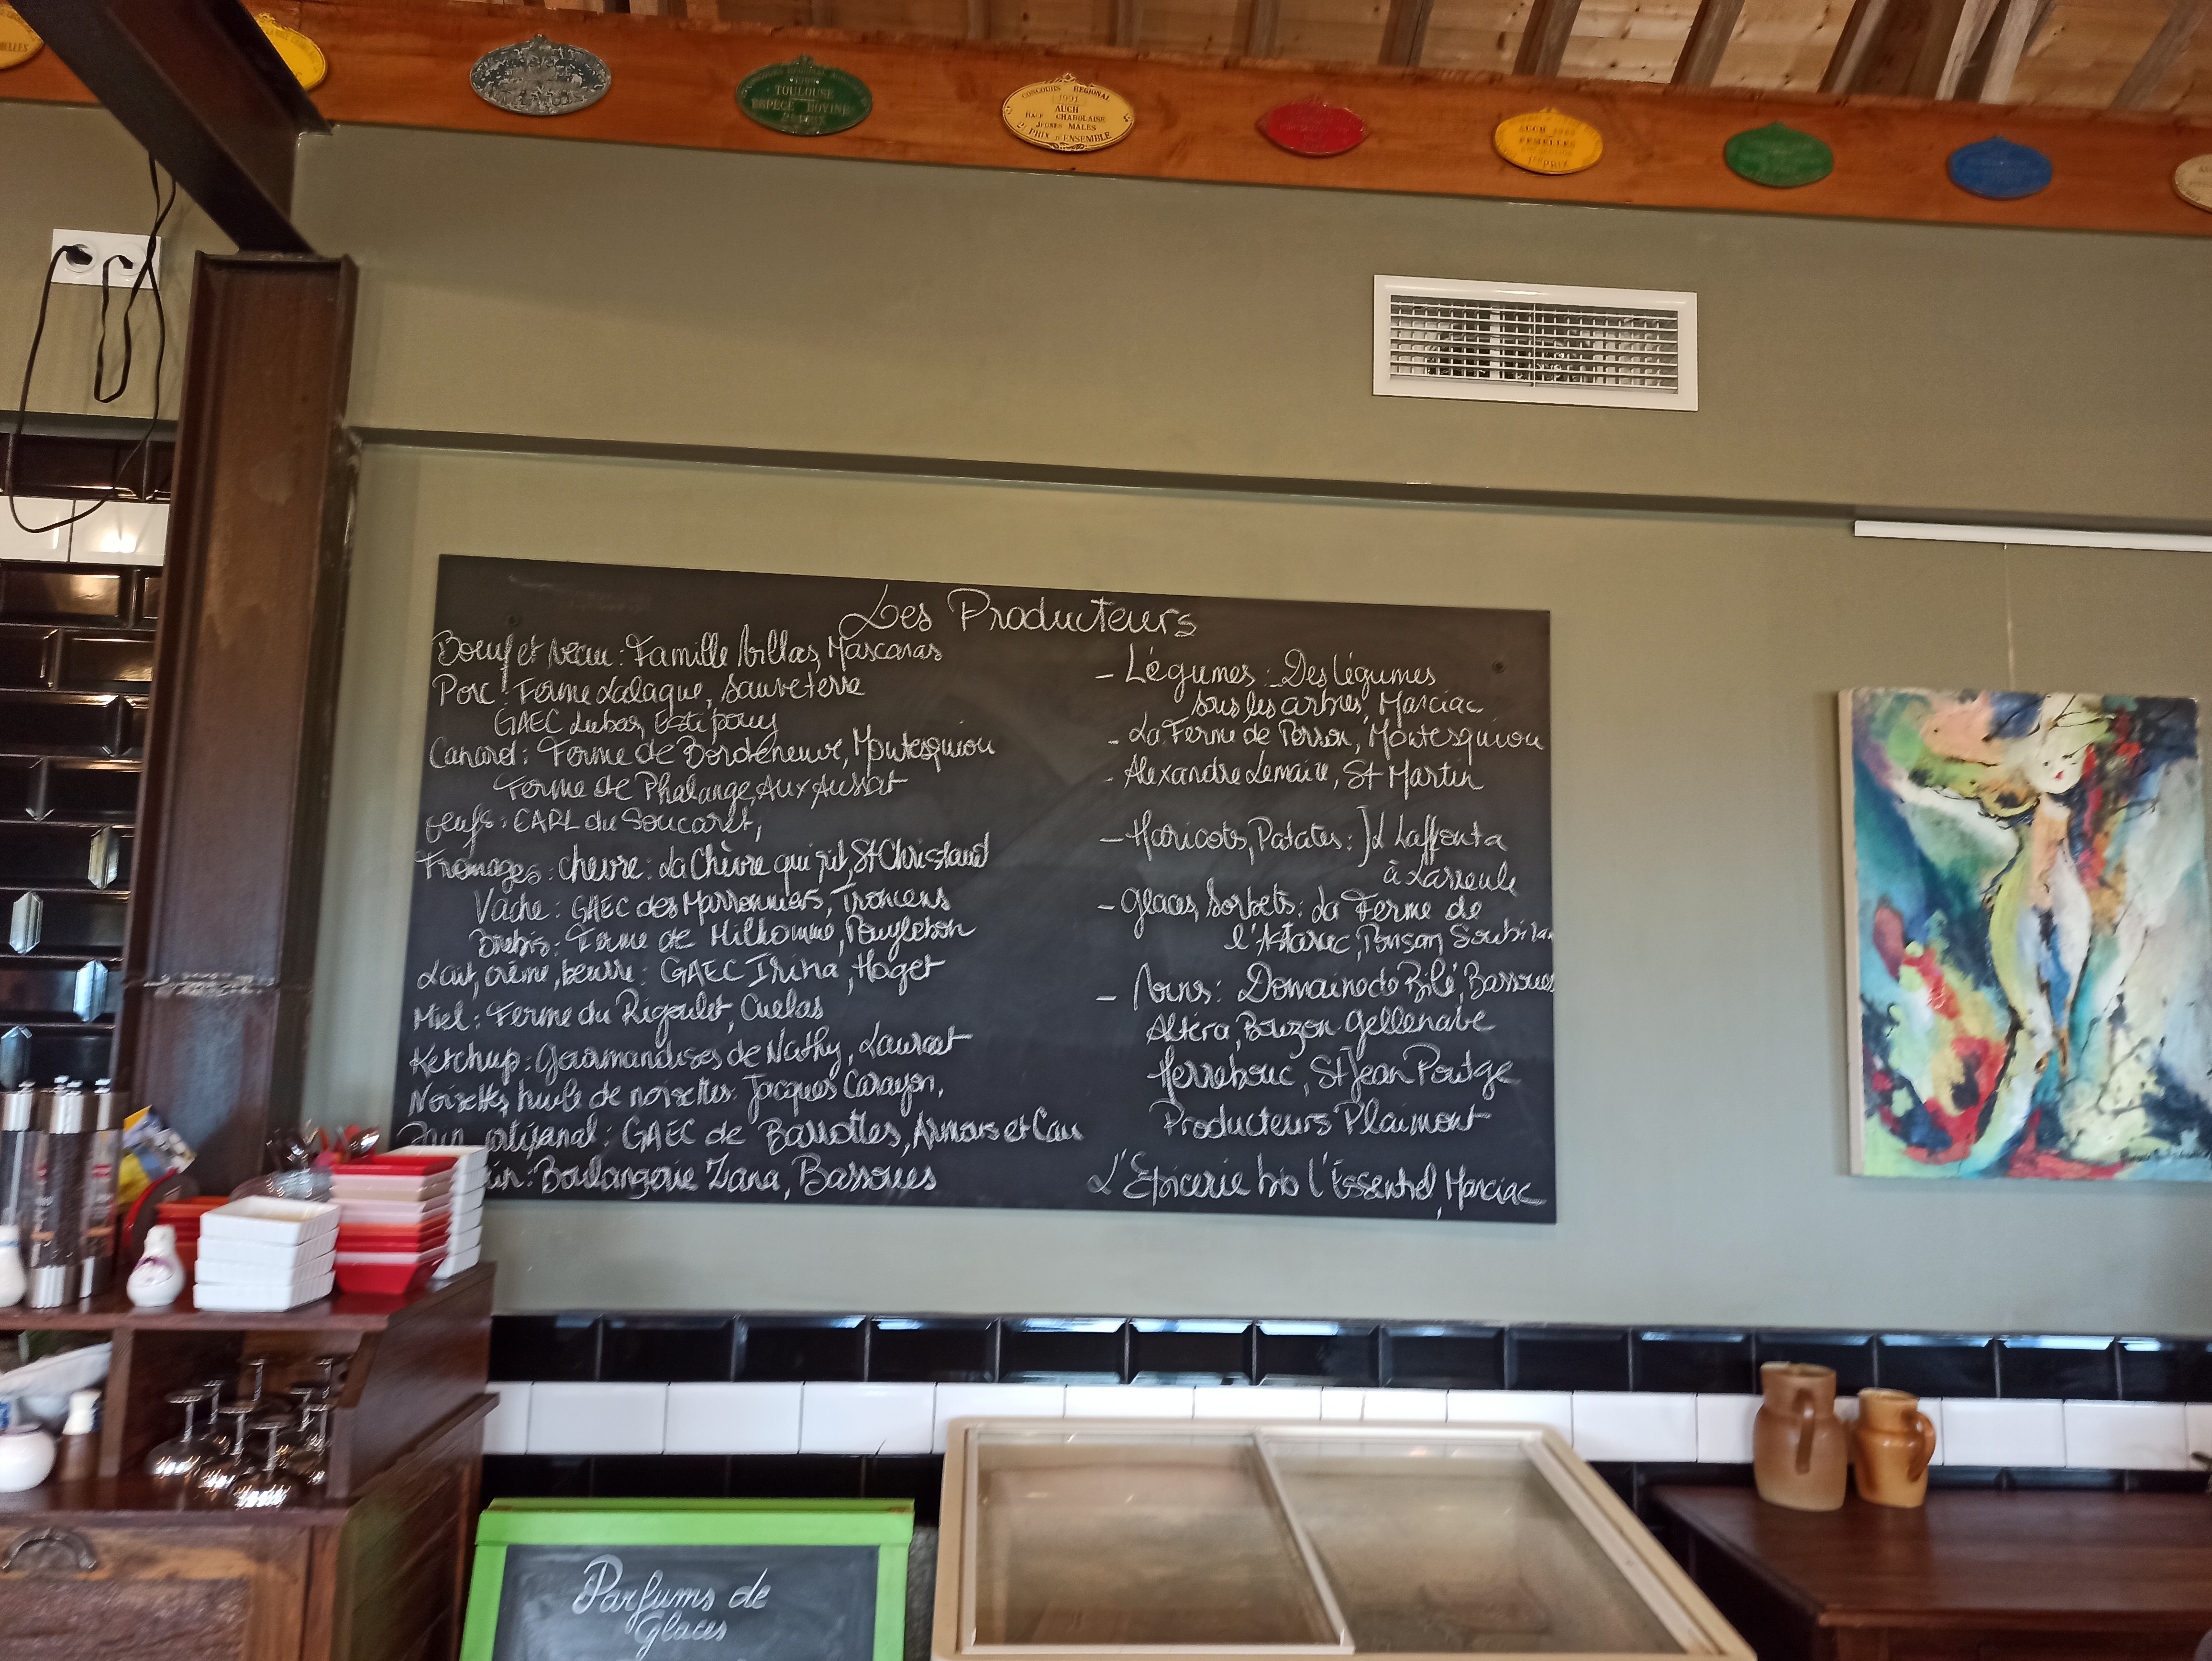 TOULOUSE
ESPECE BOVINE
CONCOURS REGIONAL
1991
AUCH
RACE CHAROLAISE
JEUNES MALES
PRIX D'ENSEMBLE
FEMELLES
1er PRIX
Les Producteurs
Boeuf et veau: Famille Villas, Mascaras
Porc: Ferme Lalague, Sauveterre
GAEC Lubas, Estipouy
Canard: Ferme de Bordeneuve, Montesquiou
Ferme de Phalange, Aux Aussat
Oeufs: EARL du Soucaret,
Fromages: chèvre: La Chèvre qui rit, St Christaud
Vache: GAEC des Marronniers, Troncens
Brebis: Ferme de Milhomme, Pouylebon
Lait, crème, beurre: GAEC Irina, Haget
Miel: Ferme du Rigoulet, Cuelas
Ketchup: Gourmandises de Nathy, Lauraet
Noisettes, huile de noisettes: Jacques Carayon,
Pain artisanal: GAEC de Barrottes, Armous et Cau
Boulangerie Zana, Bassoues
- Légumes: Des légumes
sous les arbres, Marciac
- La Ferme de Perron, Montesquiou
- Alexandre Lemaire, St Martin
- Haricots, Patates: Laffonta
à Larreule
- Glaces, Sorbets: La Ferme de
l'Astarac, Ponsan Soubiran
- Vins: Domaine de Bilé, Bassoues
Altéra, Bouzon Gellenave
Herrebouc, St Jean Poutge
Producteurs Plaimont
L'Epicerie bio l'Essentiel, Marciac
Parfums de
Glaces